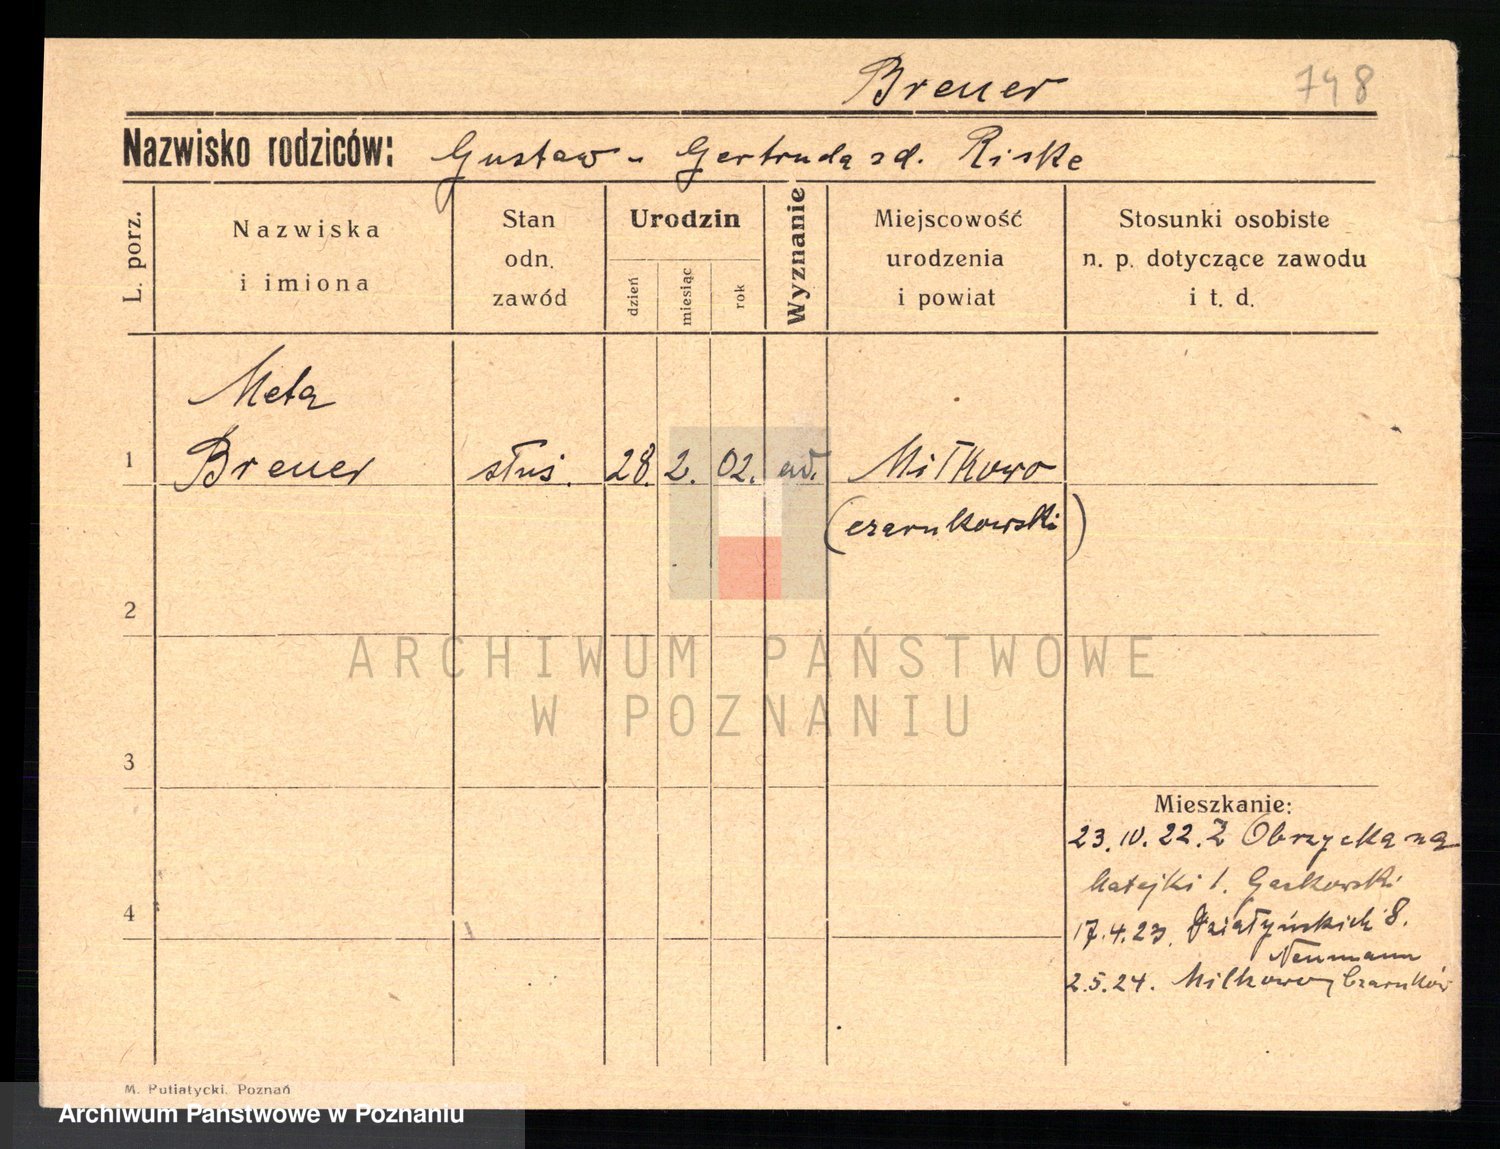 Breuer 748
Nazwisko rodziców: Gustaw - Gertruda zd. Riske
L. porz.
Nazwiska
i imiona
Stan
odn.
zawód
Urodzin
dzień
miesiąc
rok
Wyznanie
Miejscowość
urodzenia
i powiat
Stosunki osobiste
n. p. dotyczące zawodu
i t. d.
Meta
1 Breuer służ. 28. 2. 02. ew. Miłkowo
(czarnkowski)
2
ARCHIWUM PAŃSTWOWE
W POZNANIU
3
Mieszkanie:
23. 10. 22. Z Obrzycka na
Matejki 1.
4
17. 4. 23. Działyńskich 8.
Neumann
2. 5. 24. Milkowo, Czarnków
M. Putiatycki, Poznań
Archiwum Państwowe w Poznaniu